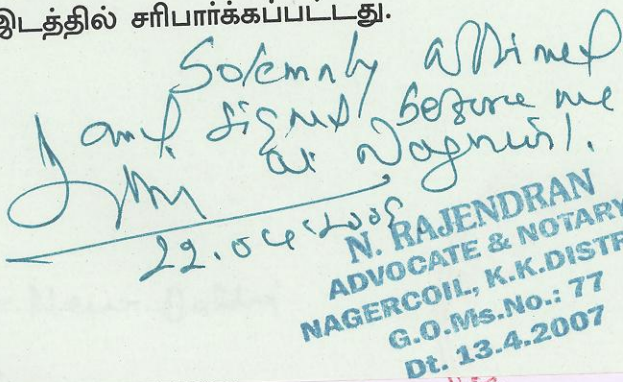 இடத்தில் சரிபார்க்கப்பட்டது.
Solemnly affirmed
and signed before me
at
22.04.
N. RAJENDRAN
ADVOCATE & NOTARY
NAGERCOIL, K.K.DISTR
G.O.Ms.No.: 77
Dt. 13.4.2007